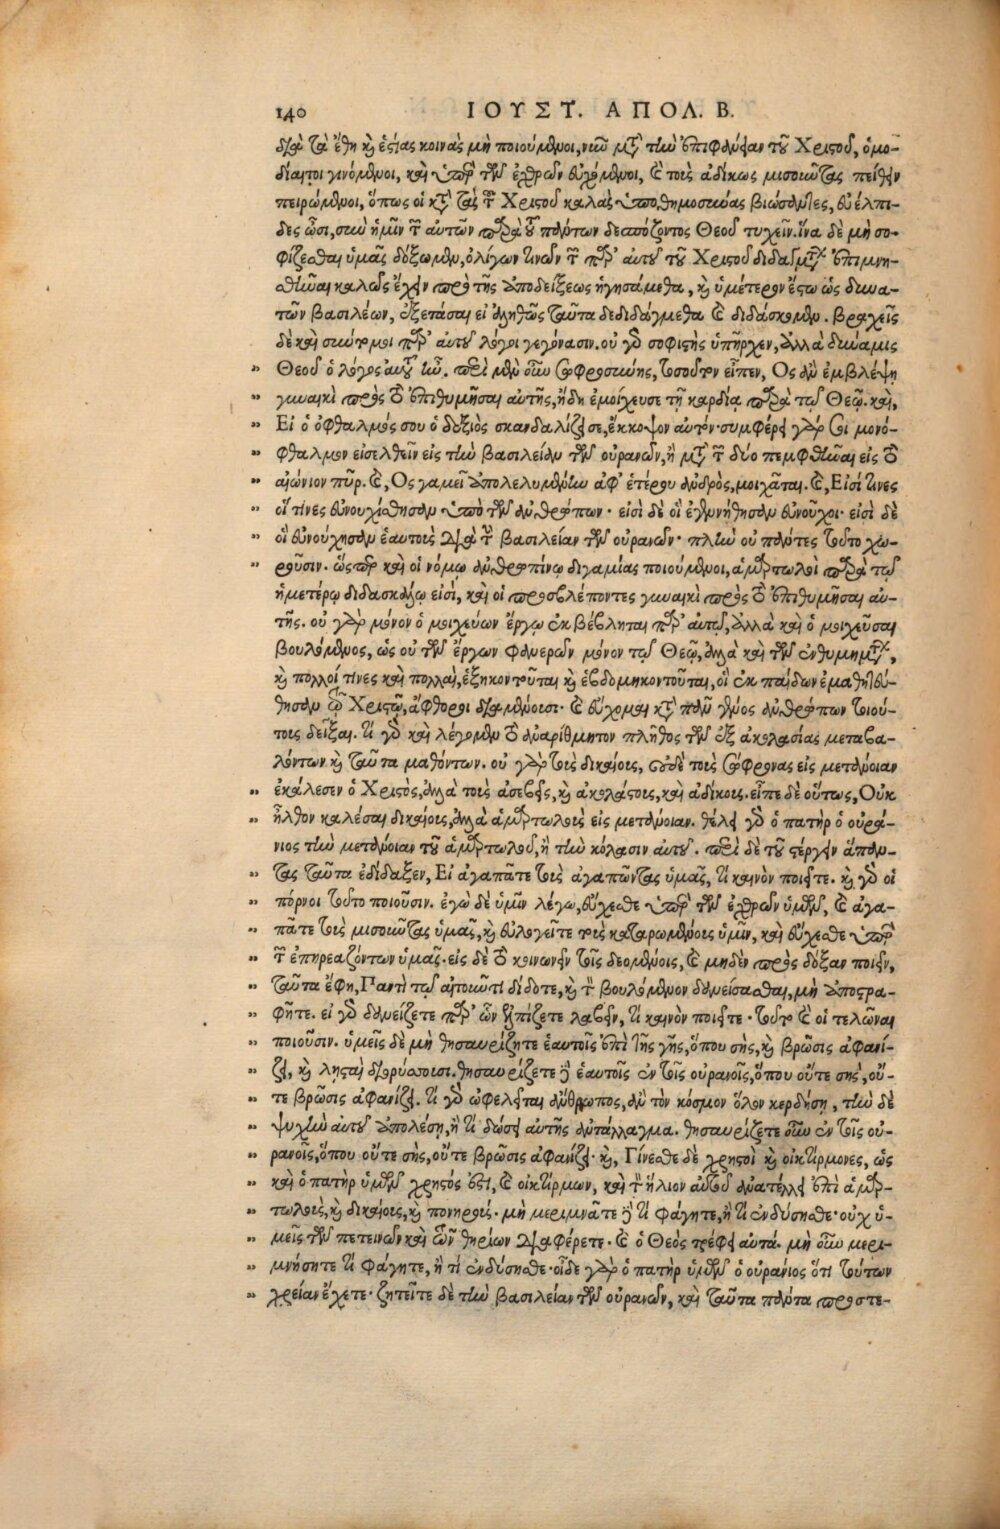 140 ΙΟΥΣΤ. ΑΠΟΛ. Β.
διὰ τὰ ἔθη καὶ ἑστίας κοινὰς μὴ ποιούμενοι, νῦν μετὰ τὴν ἐπιφάνειαν τοῦ Χριστοῦ, ὁμο-
δίαιτοι γινόμενοι, καὶ ὑπὲρ τῶν ἐχθρῶν εὐχόμενοι, καὶ τοὺς ἀδίκως μισοῦντας πείθειν
πειρώμενοι, ὅπως οἱ κατὰ τὰς τοῦ Χριστοῦ καλὰς ὑποθημοσύνας βιώσαντες, εὐέλπι-
δες ὦσι, σὺν ἡμῖν τῶν αὐτῶν παρὰ τοῦ πάντων δεσπόζοντος Θεοῦ τυχεῖν. ἵνα δὲ μὴ σο-
φίζεσθαι ὑμᾶς δόξωμεν, ὀλίγων τινῶν τῶν παρ' αὐτοῦ τοῦ Χριστοῦ διδαγμάτων ἐπιμνη-
σθῆναι καλῶς ἔχειν πρὸ τῆς ἀποδείξεως ἡγησάμεθα, καὶ ὑμέτερον ἔστω ὡς δυνα-
τῶν βασιλέων, ἐξετάσαι εἰ ἀληθῶς ταῦτα δεδιδάγμεθα καὶ διδάσκομεν. βραχεῖς
δὲ καὶ σύντομοι παρ' αὐτοῦ λόγοι γεγόνασιν. οὐ γὰρ σοφιστὴς ὑπῆρχεν, ἀλλὰ δύναμις
„ Θεοῦ ὁ λόγος αὐτοῦ ἦν. περὶ μὲν οὖν σωφροσύνης, τοσοῦτον εἶπεν, Ος ἂν ἐμβλέψῃ
„ γυναικὶ πρὸς τὸ ἐπιθυμῆσαι αὐτῆς, ἤδη ἐμοίχευσε τῇ καρδίᾳ παρὰ τῷ Θεῷ. καὶ,
„ Εἰ ὁ ὀφθαλμός σου ὁ δεξιὸς σκανδαλίζει σε, ἔκκοψον αὐτόν· συμφέρει γάρ σοι μονό-
„ φθαλμον εἰσελθεῖν εἰς τὴν βασιλείαν τῶν οὐρανῶν, ἢ μετὰ τῶν δύο πεμφθῆναι εἰς τὸ
„ αἰώνιον πῦρ. καὶ, Ος γαμεῖ ἀπολελυμένην ἀφ' ἑτέρου ἀνδρὸς, μοιχᾶται. καὶ, Εἰσί τινες
„ οἵ τινες εὐνουχίσθησαν ὑπὸ τῶν ἀνθρώπων· εἰσὶ δὲ οἳ ἐγεννήθησαν εὐνοῦχοι· εἰσὶ δὲ
„ οἳ εὐνούχησαν ἑαυτοὺς διὰ τὴν βασιλείαν τῶν οὐρανῶν· πλὴν οὐ πάντες τοῦτο χω-
„ ροῦσιν. ὥσπερ καὶ οἱ νόμῳ ἀνθρωπίνῳ διγαμίας ποιούμενοι, ἁμαρτωλοὶ παρὰ τῷ
ἡμετέρῳ διδασκάλῳ εἰσί, καὶ οἱ προσβλέποντες γυναικὶ πρὸς τὸ ἐπιθυμῆσαι αὐ-
τῆς. οὐ γὰρ μόνον ὁ μοιχεύων ἔργῳ ἐκβέβληται παρ' αὐτῷ, ἀλλὰ καὶ ὁ μοιχεῦσαι
βουλόμενος, ὡς οὐ τῶν ἔργων φανερῶν μόνον τῷ Θεῷ, ἀλλὰ καὶ τῶν ἐνθυμημάτων,
καὶ πολλοί τινες καὶ πολλαὶ, ἑξηκοντοῦται καὶ ἑβδομηκοντοῦται, οἳ ἐκ παίδων ἐμαθητεύ-
θησαν τῷ Χριστῷ, ἄφθοροι διαμένουσι· καὶ εὔχομαι κατὰ πᾶν γένος ἀνθρώπων τοιού-
τους δεῖξαι. τί γὰρ καὶ λέγομεν τὸ ἀναρίθμητον πλῆθος τῶν ἐξ ἀκολασίας μεταβα-
λόντων καὶ ταῦτα μαθόντων. οὐ γὰρ τοὺς δικαίους, οὐδὲ τοὺς σώφρονας εἰς μετάνοιαν
„ ἐκάλεσεν ὁ Χριστὸς, ἀλλὰ τοὺς ἀσεβεῖς, καὶ ἀκολάστους, καὶ ἀδίκους. εἶπε δὲ οὕτως, Οὐκ
„ ἦλθον καλέσαι δικαίους, ἀλλὰ ἁμαρτωλοὺς εἰς μετάνοιαν. θέλει γὰρ ὁ πατὴρ ὁ οὐρά-
νιος τὴν μετάνοιαν τοῦ ἁμαρτωλοῦ, ἢ τὴν κόλασιν αὐτοῦ. περὶ δὲ τοῦ στέργειν ἅπαν-
„ τας ταῦτα ἐδίδαξεν, Εἰ ἀγαπᾶτε τοὺς ἀγαπῶντας ὑμᾶς, τί καινὸν ποιεῖτε. καὶ γὰρ οἱ
„ πόρνοι τοῦτο ποιοῦσιν. ἐγὼ δὲ ὑμῖν λέγω, εὔχεσθε ὑπὲρ τῶν ἐχθρῶν ὑμῶν, καὶ ἀγα-
„ πᾶτε τοὺς μισοῦντας ὑμᾶς, καὶ εὐλογεῖτε τοὺς καταρωμένους ὑμῖν, καὶ εὔχεσθε ὑπὲρ
„ τῶν ἐπηρεαζόντων ὑμᾶς. εἰς δὲ τὸ κοινωνεῖν τοῖς δεομένοις, καὶ μηδὲν πρὸς δόξαν ποιεῖν,
„ ταῦτα ἔφη, Παντὶ τῷ αἰτοῦντι δίδοτε, καὶ τὸν βουλόμενον δανείσασθαι, μὴ ἀποστρα-
„ φῆτε. εἰ γὰρ δανείζετε παρ' ὧν ἐλπίζετε λαβεῖν, τί καινὸν ποιεῖτε· τοῦτο καὶ οἱ τελῶναι
„ ποιοῦσιν. ὑμεῖς δὲ μὴ θησαυρίζητε ἑαυτοῖς ἐπὶ τῆς γῆς, ὅπου σὴς, καὶ βρῶσις ἀφανί-
„ ζει, καὶ λῃσταὶ διορύσσουσι. θησαυρίζετε δὲ ἑαυτοῖς ἐν τοῖς οὐρανοῖς, ὅπου οὔτε σὴς, οὔ-
„ τε βρῶσις ἀφανίζει. τί γὰρ ὠφελεῖται ἄνθρωπος, ἂν τὸν κόσμον ὅλον κερδήσῃ, τὴν δὲ
„ ψυχὴν αὐτοῦ ἀπολέσῃ, ἢ τί δώσει αὐτῆς ἀντάλλαγμα. θησαυρίζετε οὖν ἐν τοῖς οὐ-
„ ρανοῖς, ὅπου οὔτε σὴς, οὔτε βρῶσις ἀφανίζει· καὶ, Γίνεσθε δὲ χρηστοὶ καὶ οἰκτίρμονες, ὡς
„ καὶ ὁ πατὴρ ὑμῶν χρηστός ἐστι, καὶ οἰκτίρμων, καὶ τὸν ἥλιον αὐτοῦ ἀνατέλλει ἐπὶ ἁμαρ-
„ τωλοὺς, καὶ δικαίους, καὶ πονηρούς. μὴ μεριμνᾶτε δὲ τί φάγητε, ἢ τί ἐνδύσησθε· οὐχ ὑ-
„ μεῖς τῶν πετεινῶν καὶ τῶν θηρίων διαφέρετε. καὶ ὁ Θεὸς τρέφει αὐτά. μὴ οὖν μερι-
„ μνήσητε τί φάγητε, ἢ τί ἐνδύσησθε· οἶδε γὰρ ὁ πατὴρ ὑμῶν ὁ οὐράνιος ὅτι τούτων
„ χρείαν ἔχετε· ζητεῖτε δὲ τὴν βασιλείαν τῶν οὐρανῶν, καὶ ταῦτα πάντα προστε-